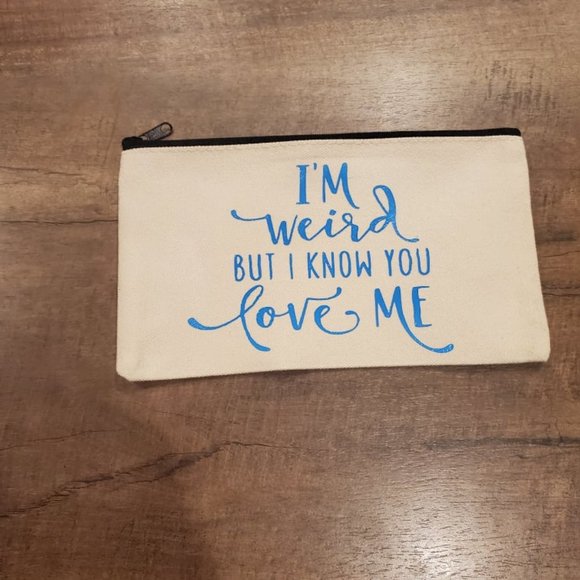 I'M
weird
BUT I KNOW YOU
love ME